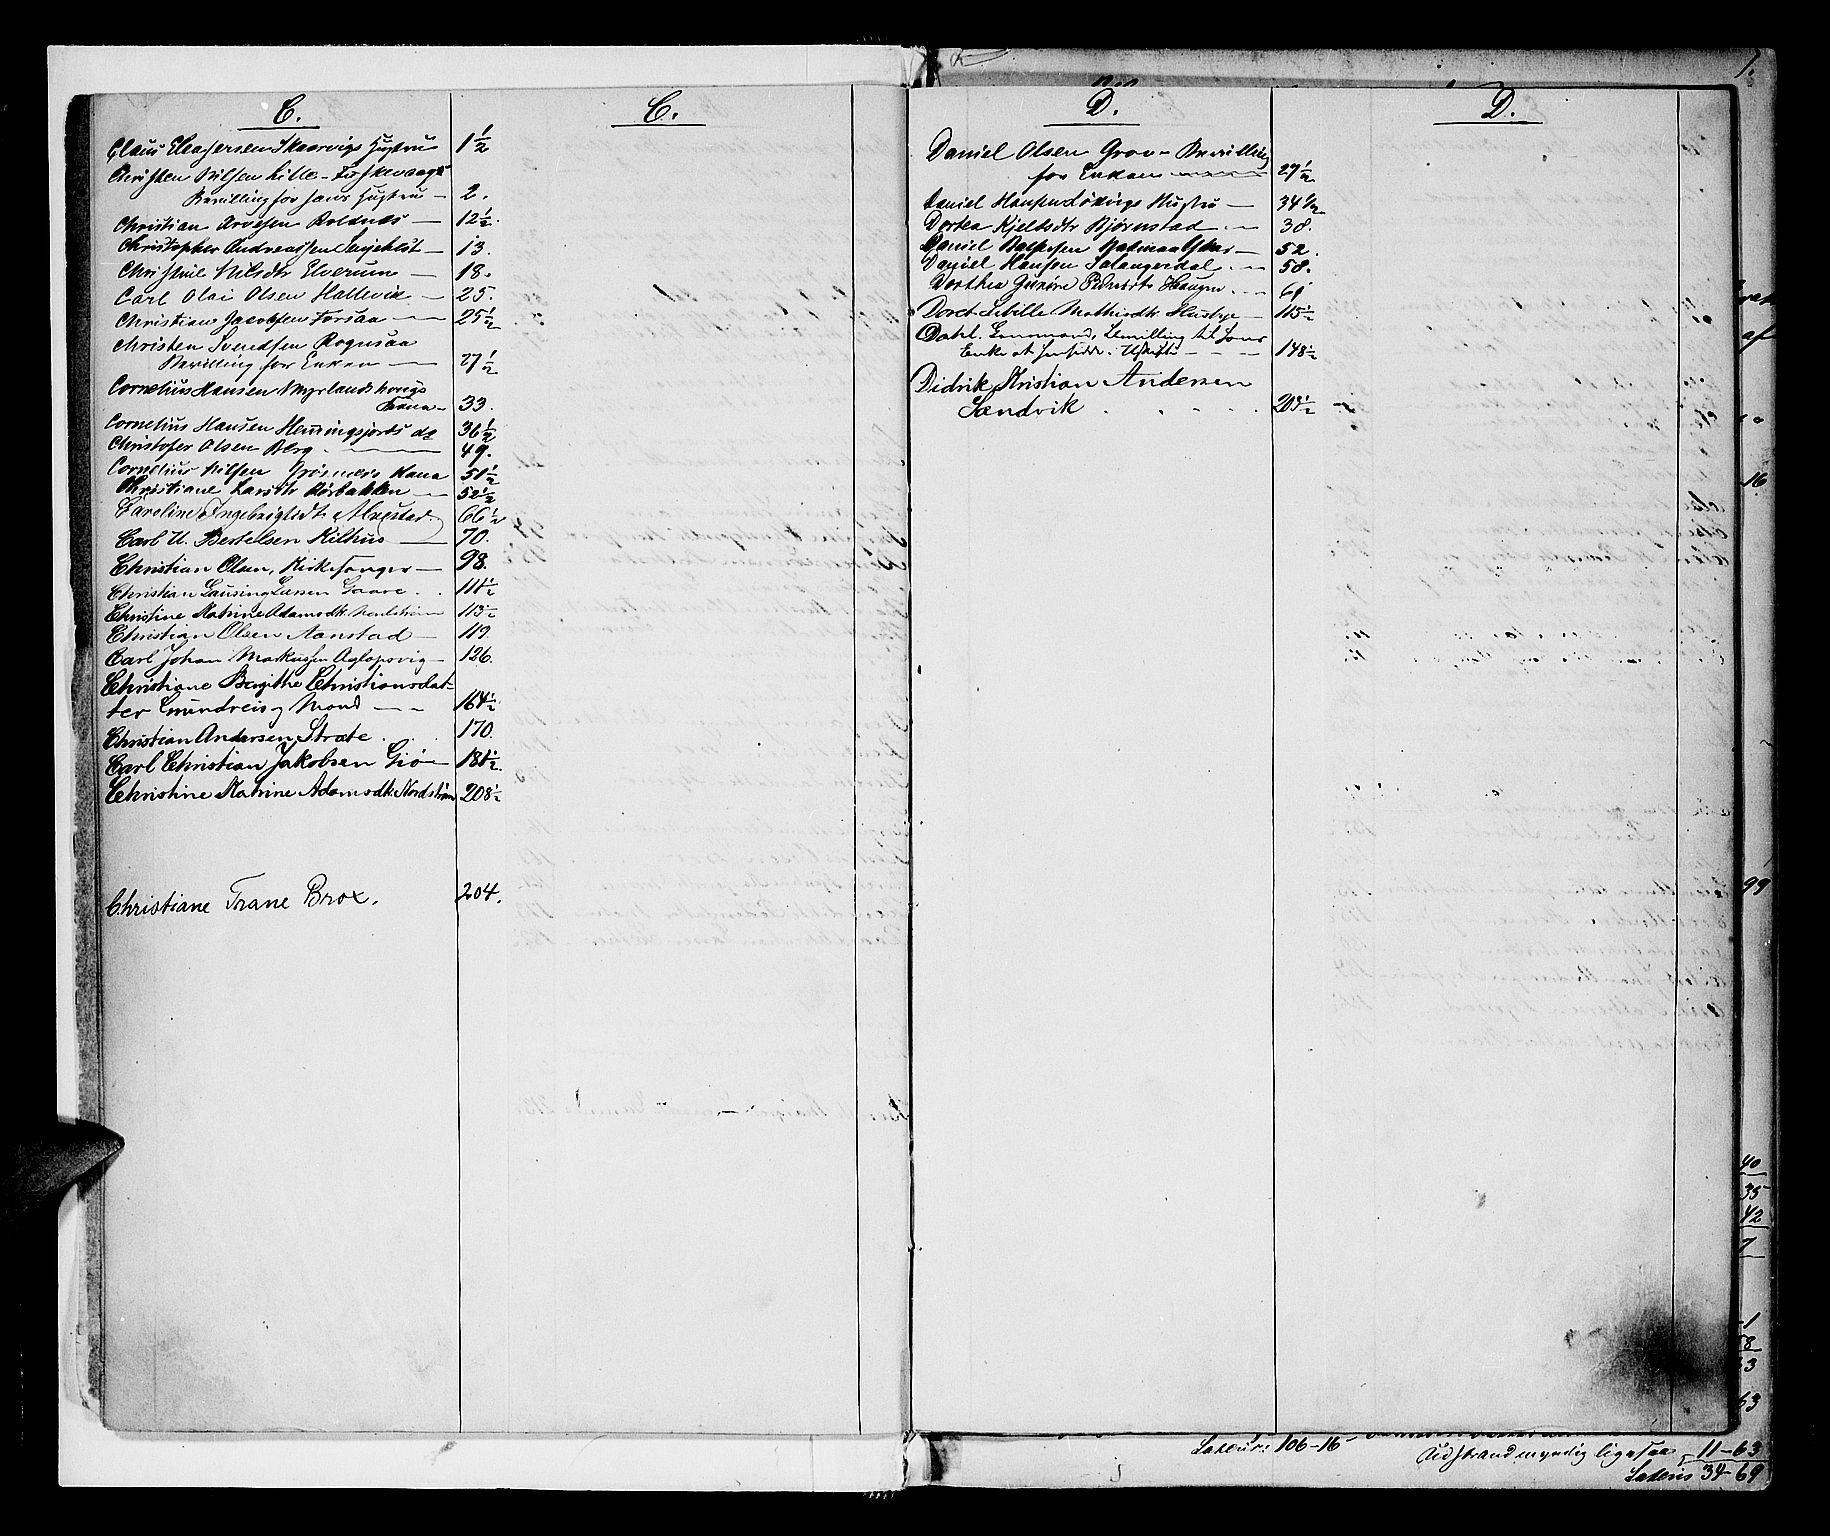 C.
C.
Claus Eleasersen Skaarvigs Hustru 1½
Christen Nilsen Lille-
Bevilling for hans Hustru — 2.
Christian Arvesen Roldnes — 12½.
Christopher Andreassen — 13.
Nilsdtr Elverum — 18.
Carl Olai Olsen Hallevik — 25.
Christian Jacobsen Forsaa — 25½
Christen Svendsen Rognsaa
Bevilling for Enken — 27½
Cornelius Hansen Myrlandshougs
Kona — 33.
Cornelius Hansen Hemmingsjords do 36½
Christofer Olsen Berg. — 49.
Cornelius Nilsen Grøsnæs Kona 51½
Christiane Larsdtr Rørbakken — 52½
Caroline Ingebrigtsdtr Alvestad. 66½
Carl U. Bertelsen Kilhus — 70.
Christian Olsen, Kirkesanger — 98.
Christian Lausing Larsen Gaare . . 111½
Christine Katrine Adamsdtr. 113½
Christian Olsen Aanstad — 119.
Carl Johan Markussen Aglapsvig — 126.
Christiane Bergithe Christiansdat-
ter Grundreis og Mand — 164½
Christian Andersen Strate . . 170.
Carl Christian Jakobsen Giø — 181½.
Christine Katrine Adamsdtr. Nordstrøm 208½
Christiane Trane Brox. 204.
D.
D.
Daniel Olsen Grov — Bevilling
for Enken 27½
Daniel Hansen Hustru — 34½
Dortea Kjeldsdtr Bjørnstad — 38.
Daniel 52.
Daniel Hansen Salangerdal — 58.
Dorthea Pedersdtr Haugen . . . 61
Doret Sibille Mathisdtr Husbye — 115½
Dahl. Emmand, Bevilling til hans
Enke at hensidde i Uskifte — 148½
Didrik Kristian Andersen
Sandvik . . . . . 203½
1.
af
16
99
40
35
42
7
1
3
63
Lateris 106-16
11-63
Lateris 34-69